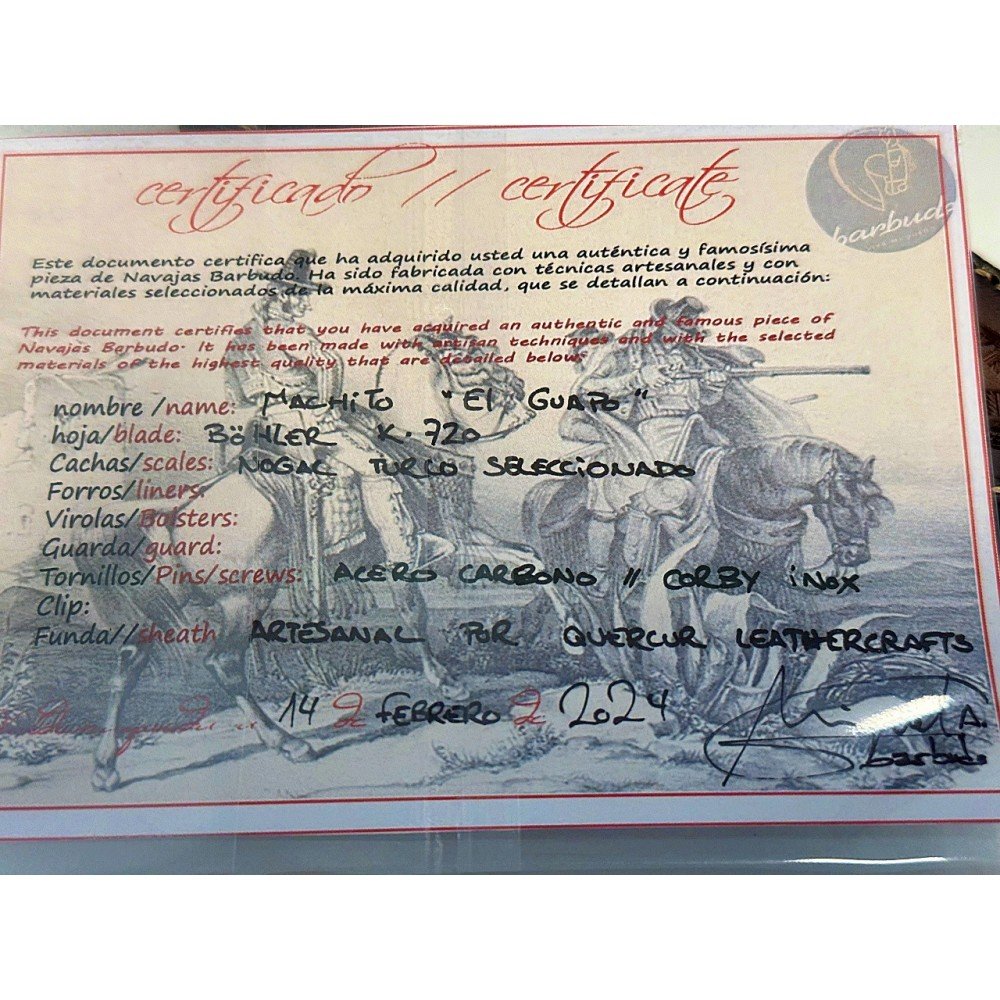 certificado // certificate
barbudo
Este documento certifica que ha adquirido usted una auténtica y famosísima
pieza de Navajas Barbudo. Ha sido fabricada con técnicas artesanales y con
materiales seleccionados de la máxima calidad, que se detallan a continuación:
This document certifies that you have acquired an authentic and famous piece of
Navajas Barbudo. It has been made with artisan techniques and with the selected
materials of the highest quality that are detailed below:
nombre /name: MACHITO "El GUAPO"
hoja/blade: BÖHLER K.720
Cachas/scales: NOGAL TURCO SELECCIONADO
Forros/liners:
Virolas/Bolsters:
Guarda/guard:
Tornillos/Pins/screws: ACERO CARBONO // CORBY iNOX
Clip:
Funda//sheath ARTESANAL POR QUERCUR LEATHERCRAFTS
14 de FEBRERO de 2024
Miguel A.
barbudo